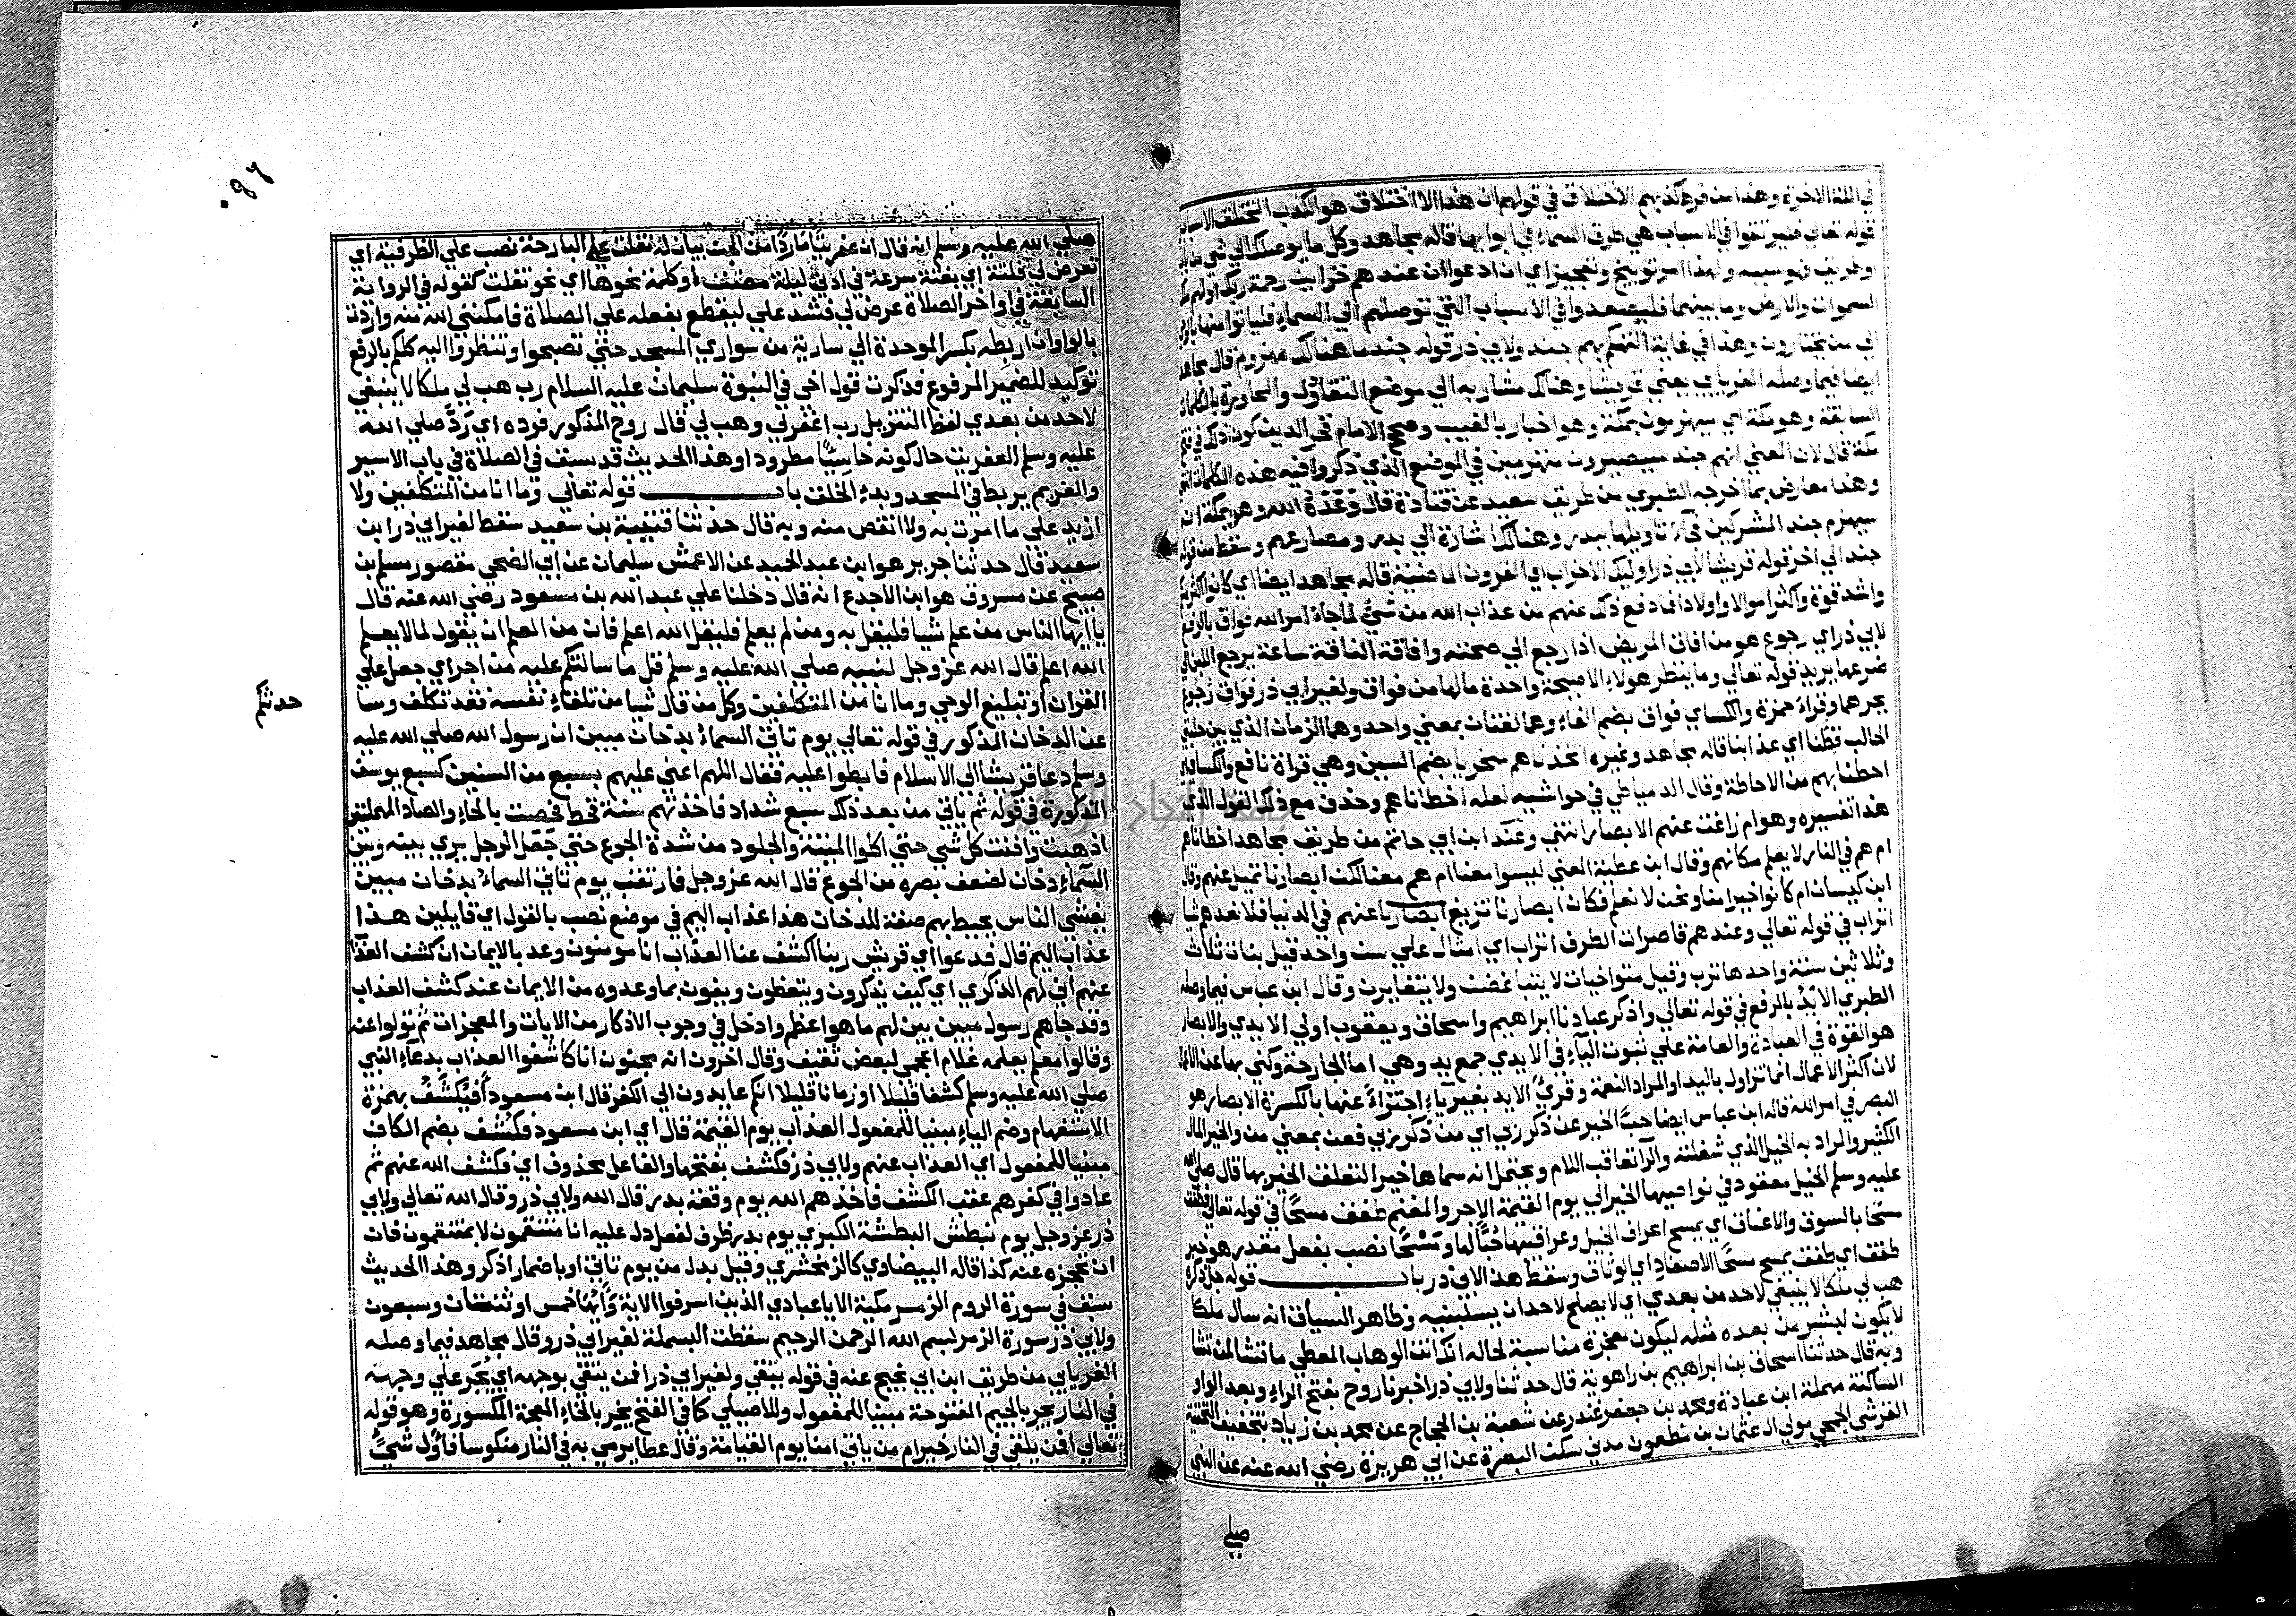 في الملة الاخرة وهذا من فرط كذبهم الاختلاق في قولهم ان هذا الا اختلاق هو الكذب المختلق الاسباب
قوله تعالي فليرتقوا في الاسباب هي طرق السماء في ابوابها قاله مجاهد وكل ما يوصلك الي شي من باب
او طريق فهو سببه وهذا امر توبيخ وتعجيز اي ان ادعوا ان عندهم خزاين رحمة ربك او لهم ملك
السموات والارض وما بينهما فليصعدوا في الاسباب التي توصلهم الي السماء فلياتوا منها بالوحي
الي من يختارون وهذا في غاية التهكم بهم جند ولابي ذر قوله جند ما هنالك مهزوم قال مجاهد
ايضا فيما وصله الفريابي يعني قريشا وهنالك مشار به الي موضع التقاول والمحاورة بالكلمات
السابقة وهو مكة اي سيهزمون بمكة وهو اخبار بالغيب وصحح الامام فخر الدين كون ذلك في فتح
مكة قال لان المعني انهم جند سيصيرون منهزمين في الموضع الذي ذكروا فيه هذه الكلمات انتهي
وهذا معارض بما اخرجه الطبري من طريق سعيد عن قتادة قال وعده الله وهو بمكة انه
سيهزم جند المشركين فجاء تاويلها ببدر وهنالك اشارة الي بدر ومصارعهم وسقط من قوله
جند الي اخر قوله قريشا لابي ذر اوليك الاحزاب اي القرون الماضية قاله مجاهد ايضا اي كانوا اكثر منكم
واشد قوة واكثر اموالا واولادا فما دفع ذلك عنهم من عذاب الله من شيء لما جاء امر الله فواق بالرفع
لابي ذر اي رجوع هو من افاق المريض اذا رجع الي صحته وافاقة الناقة ساعة يرجع اللبن الي
ضرعها يريد قوله تعالي وما ينظر هولاء الا صيحة واحدة ما لها من فواق ولغير ابي ذر فواق رجوع
بجرهما وقراة حمزة والكساي فواق بضم الفاء وهما لغتان بمعني واحد وهما الزمان الذي بين حلبتي
الحالب قطنا اي عذابنا قاله مجاهد وغيره اتخذناهم سخريا بضم السين وهي قراة نافع والكساي اي
احطنا بهم من الاحاطة وقال الدمياطي في حواشيه لعله اخطاناهم وحذف مع ذلك القول الذي
هذا تفسيره وهو ام زاغت عنهم الابصار انتهي وعند ابن ابي حاتم من طريق مجاهد اخطاناهم
ام هم في النار لا يعلم مكانهم وقال ابن عطية المعني ليسوا معنا ام هم معنا لكن ابصارنا تميل عنهم وقال
ابن كيسان ام كانوا خيرا منا ونحن لا نعلم فكان ابصارنا تزيغ عنهم في الدنيا فلا نعدهم شيا
اتراب في قوله تعالي وعندهم قاصرات الطرف اتراب اي امثال علي سن واحد قيل بنات ثلاث
وثلاثين سنة واحدها ترب وقيل متواخيات لا يتباغضن ولا يتغايرن وقال ابن عباس فيما وصله
الطبري الايد بالرفع في قوله تعالي واذكر عبادنا ابراهيم واسحاق ويعقوب اولي الايدي والابصار
هو القوة في العبادة والعامة علي ثبوت الياء في الايدي جمع يد وهي اما الجارحة وكني بها عن الاعمال
لان اكثر الاعمال انما تزاول باليد او المراد النعمة وقري الايد بغير ياء اجتزاء عنها بالكسرة الابصار هو
البصر في امر الله قاله ابن عباس ايضا حب الخير عن ذكر ربي اي من ذكر ربي فعن بمعني من والخير المال
الكثير والمراد به الخيل الذي شغلته والرآ تعاقب اللام ويحتمل انه سماها خيرا لتعلق الخير بها قال صلي الله
عليه وسلم الخيل معقود في نواصيها الخير الي يوم القيمة الاجر والمغنم طفق مسحا في قوله تعالي فطفق
مسحا بالسوق والاعناق اي يمسح اعراف الخيل وعراقيبها حبا لها ومسحا نصب بفعل مقدر هو خبر
طفق اي طفق يمسح مسحا الاصفاد اي الوثاق وسقط هذا لابي ذر باب قوله جل ذكره
هب لي ملكا لا ينبغي لاحد من بعدي اي لا يصلح لاحد ان يسلبنيه وظاهر السياق انه سال ملكا
لا يكون لبشر من بعده مثله ليكون معجزة مناسبة لحاله انك انت الوهاب المعطي ما تشا لمن تشا
وبه قال حدثنا اسحاق بن ابراهيم بن راهوية قال حدثنا ولابي ذر اخبرنا روح بفتح الراء وبعد الواو
الساكنة مهملة ابن عبادة ومحمد بن جعفر غندر عن شعبة بن الحجاج عن محمد بن زياد بتخفيف التحتية
القرشي الجمحي مولي ال عثمان بن مظعون مدني سكن البصرة عن ابي هريرة رضي الله عنه عن النبي
صلي
صلي الله عليه وسلم انه قال ان عفريتا ماردا من الجن بيان له تفلت علي البارحة نصب علي الظرفية اي
تعرض لي فلتة اي بغتة سرعة في ادني ليلة مضت او كلمة نحوها اي نحو تفلت كقوله في الرواية
السابقة في اواخر الصلاة عرض لي فشد علي ليقطع بفعله علي الصلاة فامكنني الله منه واردت
بالواو ان اربطه بكسر الموحدة الي سارية من سواري المسجد حتي تصبحوا وتنظروا اليه كلكم بالرفع
توكيد للضمير المرفوع فذكرت قول اخي في النبوة سليمان عليه السلام رب هب لي ملكا لا ينبغي
لاحد من بعدي لفظ التنزيل رب اغفر لي وهب لي قال روح المذكور فرده اي رد صلي الله
عليه وسلم العفريت حال كونه خاسيا مطرودا وهذا الحديث قد سبق في الصلاة في باب الاسير
والغريم يربط في المسجد وبدء الخلق باب قوله تعالي وما انا من المتكلفين ولا
ازيد علي ما امرت به ولا انقص منه وبه قال حدثنا قتيبة بن سعيد سقط لغير ابي ذر ابن
سعيد قال حدثنا جرير هو ابن عبد الحميد عن الاعمش سليمان عن ابي الضحي مقصور مسلم بن
صبيح عن مسروق هو ابن الاجدع انه قال دخلنا علي عبد الله بن مسعود رضي الله عنه قال
يا ايها الناس من علم شيا فليقل به ومن لم يعلم فليقل الله اعلم فان من العلم ان يقول لما لا يعلم
الله اعلم قال الله عز وجل لنبيه صلي الله عليه وسلم قل ما سالتكم عليه من اجر اي جعل علي
القران او تبليغ الوحي وما انا من المتكلفين وكل من قال شيا من تلقاء نفسه فقد تكلف وسا
حدثكم
عن الدخان المذكور في قوله تعالي يوم تاتي السماء بدخان مبين ان رسول الله صلي الله عليه
وسلم دعا قريشا الي الاسلام فابطوا عليه فقال اللهم اعني عليهم بسبع من السنين كسبع يوسف
المذكورة في قوله ثم ياتي من بعد ذلك سبع شداد فاخذتهم سنة قحط فحصت بالحاء والصاد المهملتين
اذهبت وافنت كل شي حتي اكلوا الميتة والجلود من شدة الجوع حتي جعل الرجل يري بينه وبين
السماء دخان لضعف بصره من الجوع قال الله عز وجل فارتقب يوم تاتي السماء بدخان مبين
يغشي الناس يحيط بهم صفة للدخان هذا عذاب اليم في موضع نصب بالقول اي قايلين هذا
عذاب اليم قال فدعوا اي قريش ربنا اكشف عنا العذاب انا مومنون وعد بالايمان ان كشف العذا
عنهم اني لهم الذكري اي كيف يذكرون ويتعظون ويفون بما وعدوه من الايمان عند كشف العذاب
وقد جاهم رسول مبين بين لهم ما هو اعظم وادخل في وجوب الاذكار من الايات والمعجزات ثم تولوا عنه
وقالوا معلم يعلمه غلام اعجمي لبعض ثقيف وقال اخرون انه مجنون انا كاشفوا العذاب بدعاء النبي
صلي الله عليه وسلم كشفا قليلا او زمانا قليلا انكم عايدون الي الكفر قال ابن مسعود أفيكشف بهمزة
الاستفهام وضم الياء مبنيا للمفعول العذاب يوم القيمة قال اي ابن مسعود فكشف بضم الكاف
مبنيا للمفعول اي العذاب عنهم ولابي ذر فكشف بفتحها والفاعل محذوف اي فكشف الله عنهم ثم
عادوا في كفرهم عقب الكشف فاخذهم الله يوم وقعة بدر قال الله ولابي ذر وقال الله تعالي ولابي
ذر عز وجل يوم نبطش البطشة الكبري يوم بدر ظرف لفعل دل عليه انا منتقمون لا بمنتقمون فان
ان تحجزه عنه كذا قاله البيضاوي كالزمخشري وقيل بدل من يوم تاتي او باضمار اذكر وهذا الحديث
سبق في سورة الروم الزمر مكية الا يا عبادي الذين اسرفوا الاية وآيها خمس او ثنتان وسبعون
ولابي ذر سورة الزمر بسم الله الرحمن الرحيم سقطت البسملة لغير ابي ذر وقال مجاهد فيما وصله
الفريابي من طريق ابن ابي نجيح عنه في قوله يتقي ولغير ابي ذر افمن يتقي بوجهه اي يجر علي وجهه
في النار يجر بالجيم المفتوحة مبنيا للمفعول وللاصيلي كما في الفتح يخر بالخاء المعجمة المكسورة وهو قوله
تعالي افمن يلقي في النار خير ام من ياتي امنا يوم القيامة وقال عطا يرمي به في النار منكوسا فاول شيء